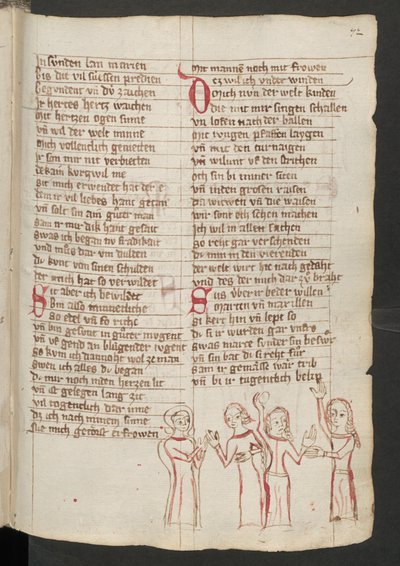 72
In sünden lan marien
Bis die vil süessen predien
Begundent vn dv zaichen
Ir hertes hertz waichen
Mit herzen ogen sinne
Vn wil der welt minne
Mich vollenclich genieten
Ir son mir nit verbieten
dekain kurtzwil me
Sit mich erwendet hat der e
dem ir vil liebes hant getan
vn solt sin am guter man
Sam ir mir dik hant geseit
Swas ich began in
vn mus dar vm dulden
Di kont von sinen schulden
der mich hat so verwildet
Sit aber ich bewildet
Bin also minnecliche
So edel vn so riche
vn bin gesunt in guter mugent
vn ve gend an blügender iugent
So kum ich dannoht wol ze man
Swen ich alles di began
Di mir noch in dem herzen lit
vn ist gelegen lang zit
vil togenlich dar inne
di ich nach minem sinne
Nie mich gelost ei frowen
Mit mannen noch mit frowen
Dez wil ich vnder winden
Mich nvn der welt kinden
die mit mir singen schallen
vn lofen nach der ballen
Mit iungen pfaffen laygen
vn mit den
vn wilunt vf den strichen
Och sin bi miner siten
vn inden grosen raisen
da witwen vn die waisen
wir sont och schen machen
Ich wil in allen sachen
So reht gar verschenden
Di min in den vierenden
der welt wirt hie nach gedaht
vnd des der mich dar zv braht
Sus vber ir beder willen
Marien vn marsillen
Si kert hin vn lept so
di si ir wurden gar
Swas marce sunder sin beswr
vn sin bat di si reht für
Sam ir gemässe wär trib
vn bi ir tugentlich belip